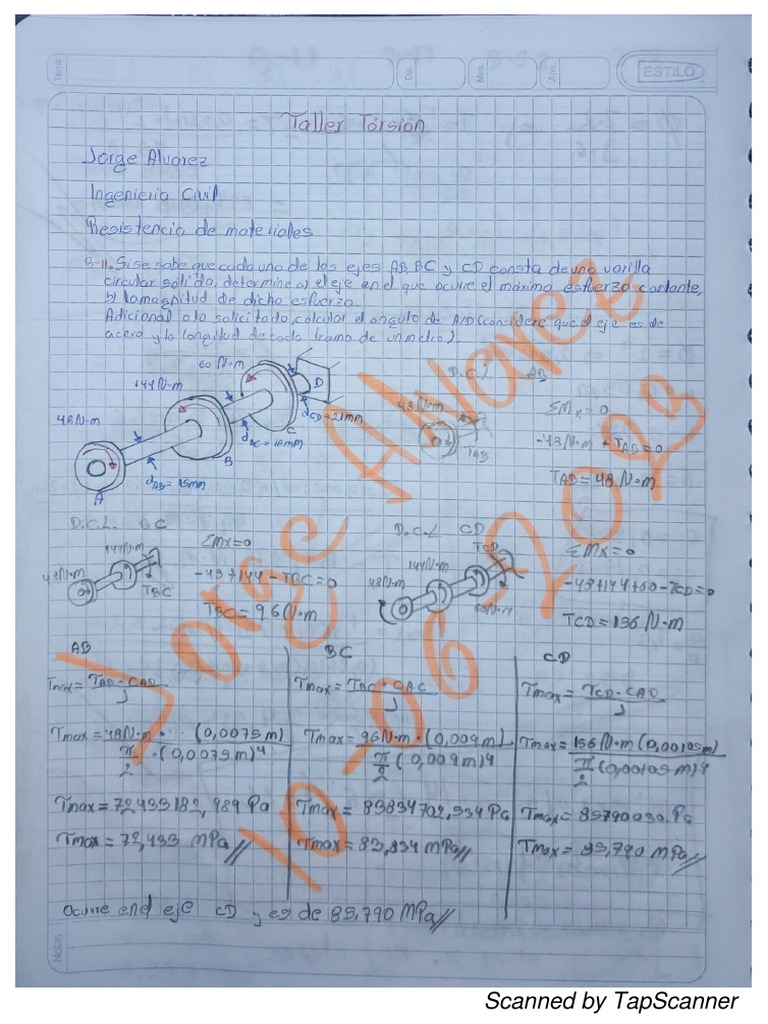 Tema
Dia
Mes
Año
ESTILO
Taller Torsión
Jorge Alvarez
Ingenieria Civil
Resistencia de materiales
3-11. Si se sabe que cada uno de los ejes AB, BC y CD consta de una varilla
circular solida, determine a) el eje en el que ocurre el máximo esfuerzo cortante,
b) la magnitud de dicho esfuerzo.
Adicional a lo solicitado, calcular el angulo de A/D (considere que el eje es de
acero y la longitud de cada tramo de un metro).
60 N·m
144 N·m
48 N·m
D
C
dCD = 21mm
dBC = 18mm
B
dAB = 15mm
A
D.C.L AB
48 N·m
TAB
ΣMx=0
-48 N·m + TAB=0
TAB=48 N·m
D.C.L. BC
144 N·m
48 N·m
TBC
ΣMx=0
-48+144-TBC=0
TBC=96 N·m
D.C.L CD
TCD
144 N·m
48 N·m
60 N·m
ΣMx=0
-48+144+60-TCD=0
TCD=156 N·m
AB
Tmax = TAB · CAB
J
Tmax = 48 N·m · (0,0075m)
π/2 · (0,0075m)^4
Tmax = 72433182,989 Pa
Tmax = 72,433 MPa
BC
Tmax = TBC · CBC
J
Tmax = 96 N·m · (0,009m)
π/2 (0,009m)^4
Tmax = 83834702,534 Pa
Tmax = 83,834 MPa
CD
Tmax = TCD · CAD
J
Tmax = 156 N·m (0,00105m)
π/2 (0,00105m)^4
Tmax = 85790030. Pa
Tmax = 85,790 MPa
Ocurre en el eje CD y es de 85,790 MPa
Jorge Alvarez
10-06-2023
Notas
Scanned by TapScanner